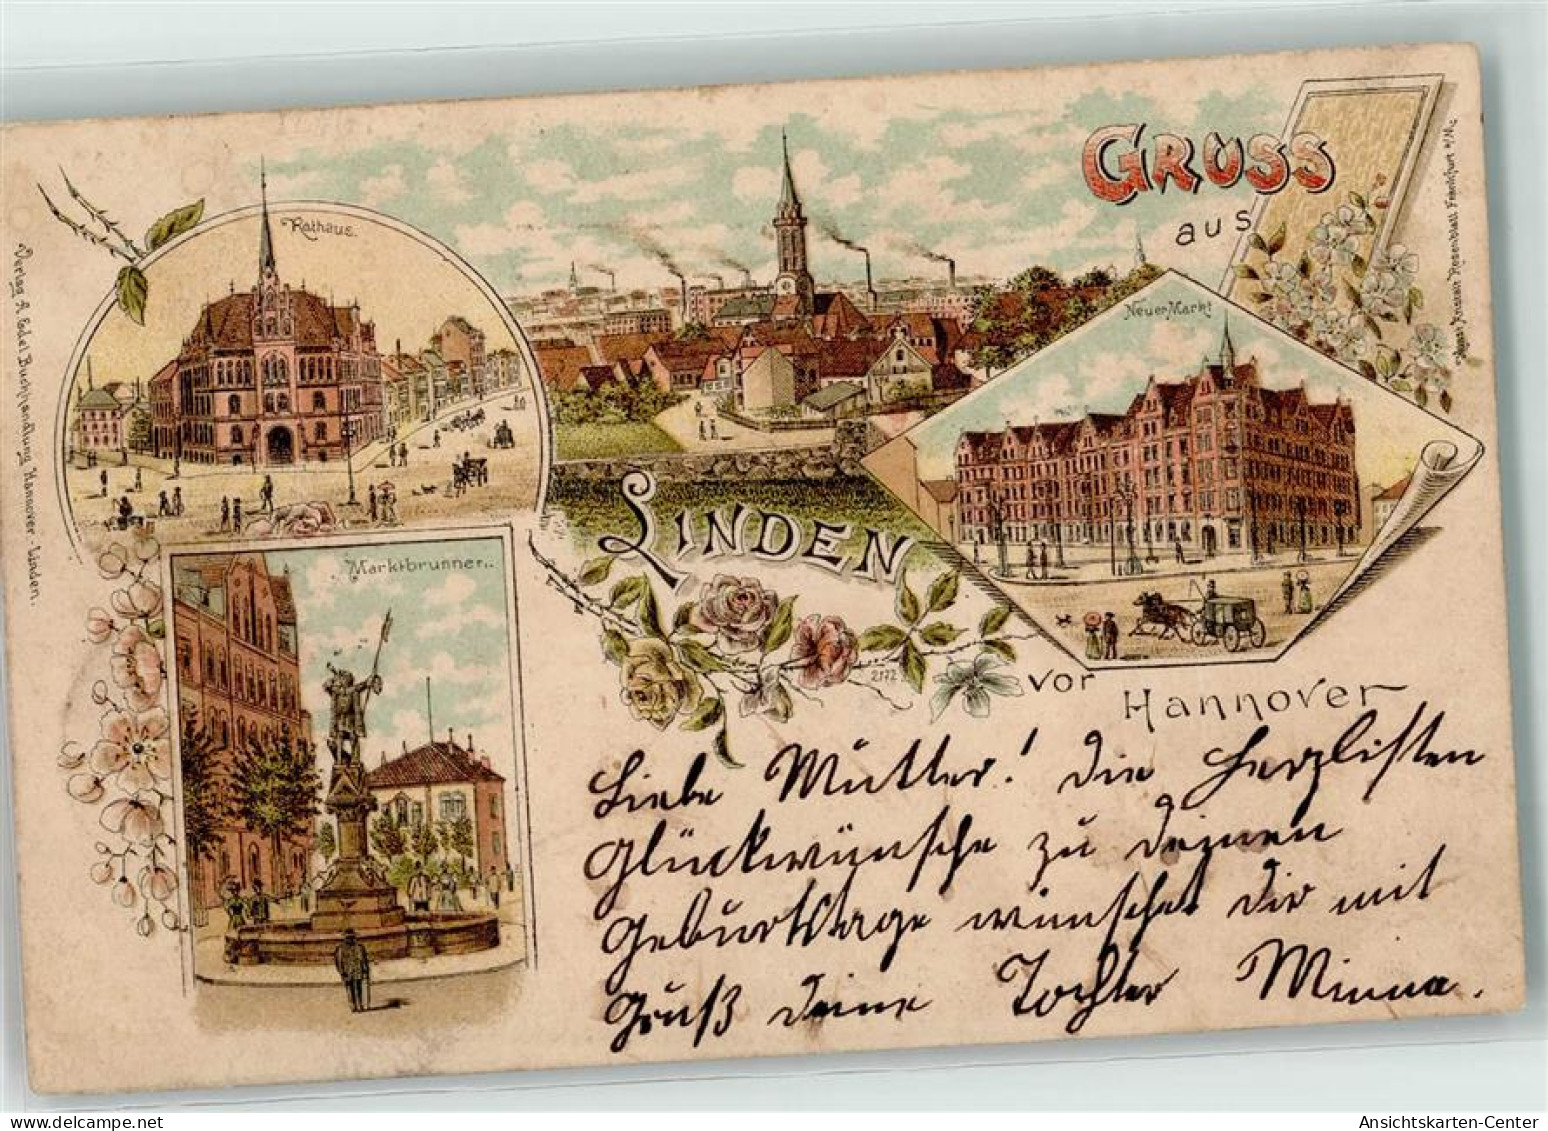 GRUSS
aus
Rathaus.
Neuer Markt
Marktbrunnen.
LINDEN
vor Hannover
2172
Verlag A. Edel Buchhandlung Hannover Linden.
Frankfurt a/M.
Liebe Mutter! Die herzlichsten
Glückwünsche zu Deinen
Geburtstage wünschet Dir mit
Gruß deine Tochter Minna.
Ansichtskarten-Center